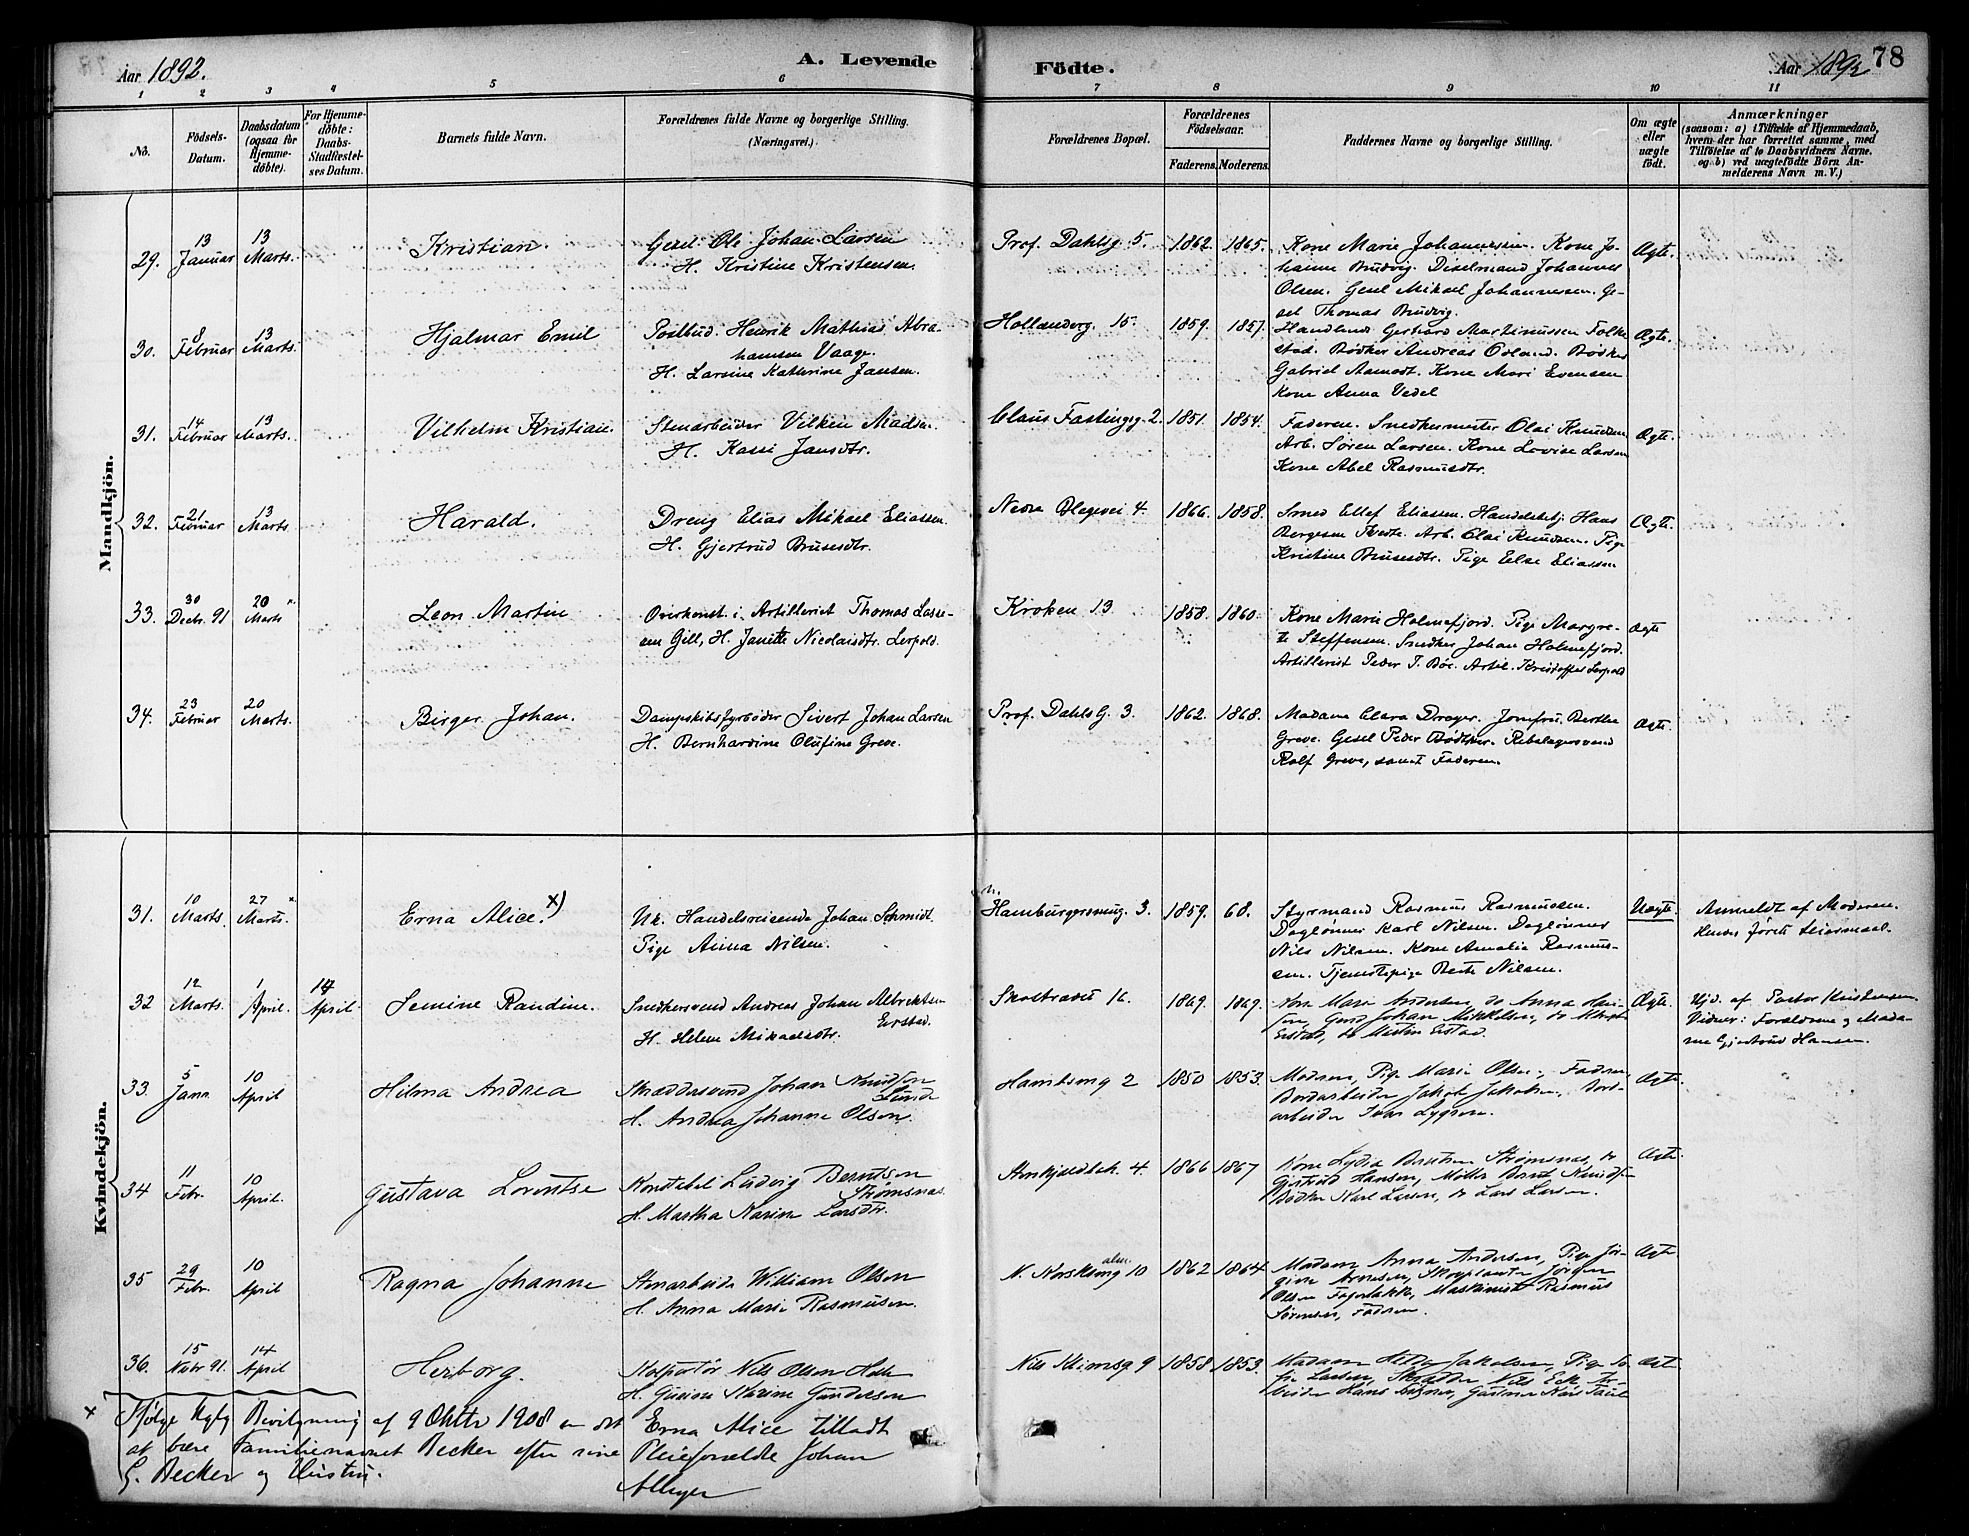 Aar 1892.
A. Levende
Födte.
Aar 1892
78
1 2 3 4 5 6 7 8 9 10 11
No.
Födsels-Datum.
Daabsdatum (ogsaa for Hjemme-döbte).
For Hjemme-döbte: Daabs-Stadfæstel-ses Datum.
Barnets fulde Navn.
Forældrenes fulde Navne og borgerlige Stilling.
(Næringsvei.)
Forældrenes Bopæl.
Forældrenes Födselsaar.
Faderens.
Moderens.
Faddernes Navne og borgerlige Stilling.
Om ægte eller uægte födt.
Anmærkninger
(saasom: a) i Tilfælde af Hjemmedaab,
hvem der har forrettet samme, med
Tilföielse af to Daabsvidners Navne.
og b) ved uægtefödte Börn An-
melderens Navn m. V.)
Mandkjön.
29. 13 Januar 13 Marts. Kristian. Gesel Ole Johan Larsen
H. Kristine Kristensen.
Prof. Dahlsg. 5. 1862. 1865. Kone Marie Johannesen. Kone Jo-
hanne Brudvig. Johannes
Olsen. Gesel Mikael Johannesen. Ge-
sel Thomas Brudvig.
Ægte.
30. 8 Februar 13 Marts. Hjalmar Emil Postbud Henrik Mathias Abra-
hamsen Vaage.
H. Larsine Kathrine Jansen.
Hollenderg. 15. 1859. 1857. Handlende Gerhard Martinussen Folke-
stad. Bödker Andreas Odland. Bödker
Gabriel Aamodt. Kone Mari Evensen
Kone Anna Vedel
Ægte.
31. 14 Februar 13 Marts. Vilhelm Kristian. Stenarbeider Vilken Madsen.
H. Kassi Jansdtr.
Claus Fastingsg. 2. 1851. 1854. Faderen. Snedkermester Olai Knudsen
Arb. Sören Larsen. Kone Lovise Larsen
Kone Abel Rasmusdtr.
Ægte.
32. 21 Februar 13 Marts Harald. Dreng Elias Mikael Eliassen.
H. Gjertrud Brusesdtr.
Nedre Blegevei 4. 1866. 1858. Smed Ellef Eliassen. Handelsbetj. Hans
Börgesen Arb. Olai Knudsen. Pige
Kristine Brusesdtr. Pige Else Eliassen
Ægte.
33. 30 Decbr. 91 20 Marts Leon Martin Overkonst. i Artilleriet Thomas Lasse-
sen Gill, H. Janitte Nicolaisdtr. Lerpold.
Kroken 13 1858. 1860. Kone Marie Holmefjord. Pige Margre-
te Steffensen. Snedker Johan Holmefjord.
Artillerist Peder T. Böe. Artil. Kristoffer Lerpold
Ægte
34. 23 Februar 20 Marts. Birger Johan. Dampskibsfyrböder Sivert Johan Larsen
H. Bernhardine Olufine Greve.
Prof. Dahls G. 3. 1862. 1868. Madame Clara Dreyer. Jomfru Berthe
Greve. Gesel Peder Bödtker. Rebslagersvend
Rolf Greve, samt Faderen.
Ægte.
Kvindekjön.
31. 10 Marts. 27 Marts. Erna Alice x) Uk. Handelsreisende Johan Schmidt.
Pige Anna Nilsen.
Hamburgersmug. 3. 1859. 68. Styrmand Rasmus Rasmussen.
Daglönner Karl Nilsen. Daglönner
Nils Nilsen. Kone Amalia Rasmus-
sen. Tjenestepige Berte Nilsen.
Uægte. Anmeldt af Moderen.
Hendes förste Leiermaal.
32 12 Marts. 1 April. 14 April. Semine Randine. Snedkersvend Andreas Johan Albrektsen
Erstad.
H. Helene Mikaelsdtr.
Skostrædet 16. 1869. 1869. Kone Mari Andersen, do Anna Han-
sen, Gesel Johan Mikkelsen, do
Erstad, do Martin Erstad.
Ægte. Hjd. af Pastor Kristensen.
Vidner: Forældrene og Mada-
me Gjertrud Hansen.
33 5 Janr 10 April Hilma Andrea Skræddersvend Johan Knudsen
Lunde
H. Andrea Johanne Olsen.
Hamb.smg 2 1850 1853. Moderen, Pige Marie Olsen, Faderen
Bordarbeider Jakob Jakobsen, Bord-
arbeider Lygren.
Ægte.
34 11 Febr. 10 April. Gustava Lorentse Konstabel Ludvig Berntsen
Strømsnes.
H. Martha Karine Larsdtr.
4. 1866 1867 Kone Lydia Berntsen Strømsnes, do
Gertrud Hansen, Möller Bernt Knudsen
Bödker Karl Larsen, do Lars Larsen.
Ægte
35 29 Febr. 10 April Ragna Johanne Stenarbeider William Olsen
H. Anna Marie Rasmussen.
N. Korskirkealm. 10 1862 1864 Madam Anna Andersen, Pige Jör-
gine Arnesen, Jörgen
Olsen Maskinist Rasmus
Sörensen, Faderen.
Ægte
36. 15 Novbr 91. 14 April Herborg. Kolportör Nils Olsen Holm
H. Gurine Marine Gundersen
Nils Klimsg 9 1858 1853. Madam Jakobsen, Pige So-
fie Larsen, Skrædder Nils Eek, Ar-
beider Hans Gartner Karl
Ægt
x Ifølge Kglg Bevilgning af 9 Oktbr 1908 er det Erna Alice tilladt
at bære Familienavnet Becker efter sine Pleieforældre Johan
G. Becker og Hustru.